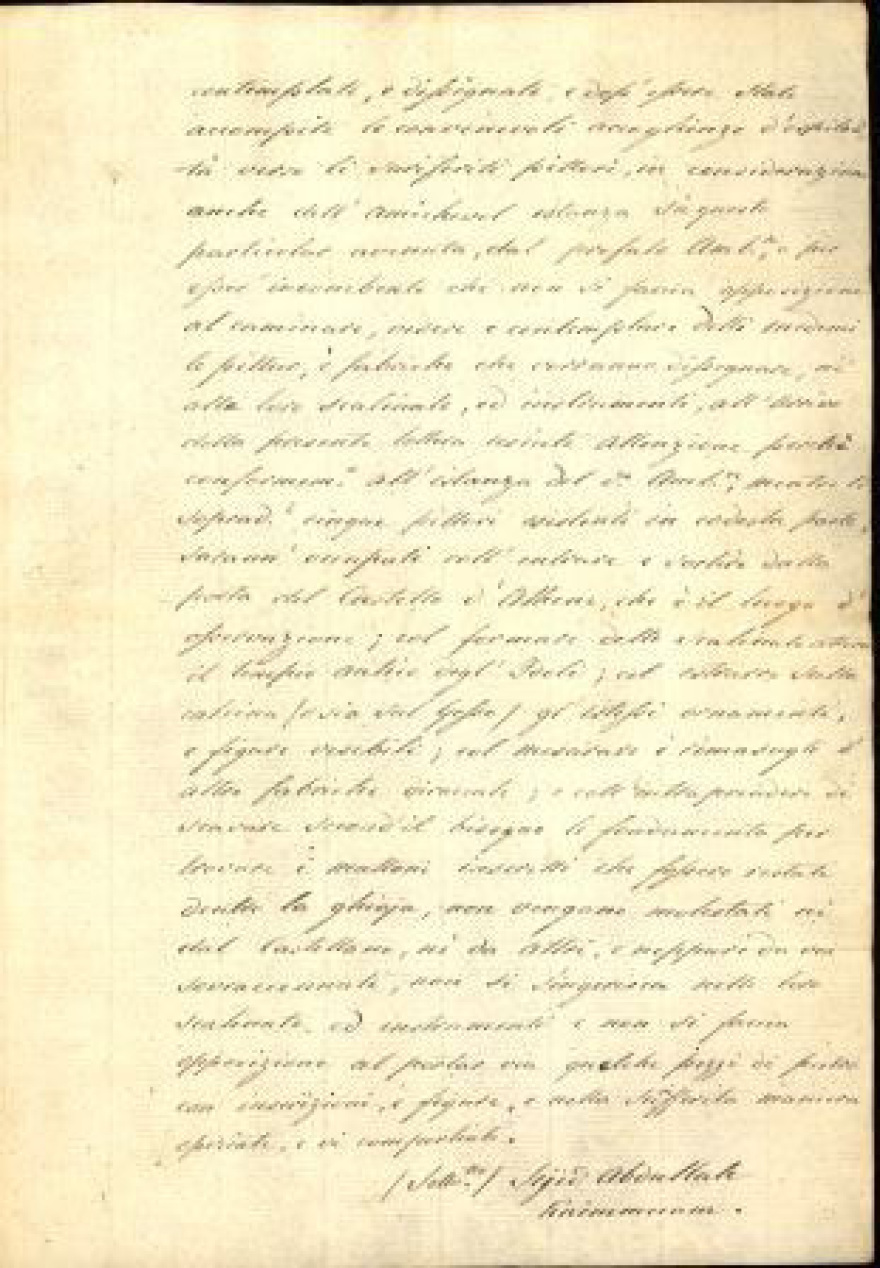 contemplate, e dissegnate, e dopo essere state
accompite le convenevoli accoglienze d'ospitali
-tà verso li suriferiti pittori, in considerazione
anche dell' amichevol istanza di questo
particolar avenuta, dal prefato Amb.re, e per
esser' incombente che non si faccia opposizione
al caminare, vedere e contemplare delli medemi
le pitture, e fabriche che vorranno dissegnare, nè
alle loro scalinate, ed instrumenti, all' arrivo
della presente lettera usiate attenzione perchè
conformem.e all' istanza del d.o Amb.re, mentre li
soprad.i cinque pittori esistenti in codesta parte,
saranno occupati coll' entrare e sortire dalla
porta del Castello d' Athene, che è il luogo d'
osservazione; col formare delle scalinate attorno
il tempio antico degl' Idoli; col estrarre sulla
calcina (o sia sul Gesso) gl' istessi ornamenti,
e figure visibili; col misurare i rimasugli d'
altre fabriche diroccate; e coll' intraprendere di
scavare second' il bisogno le fondamenta per
trovare i mattoni inscritti che fossero restati
dentro la ghiaja, non vengano molestati nè
dal Castellano, nè da altri, e neppure da voi
sovraccennati, non si s'ingerisca nelle loro
scalinate, ed instrumenti e non si faccia
opposizione al portar via qualche pezzi di pietra
con inscrizioni, e figure, e nella suddetta maniera
operiate, e vi comportiate.
(Sott.tto) Sejid Abdullah
Kaimmecam.